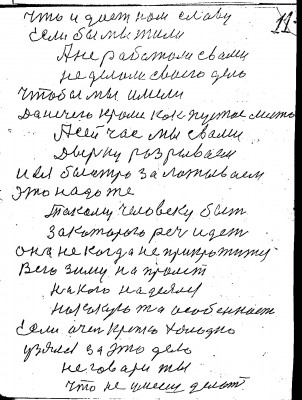 что и дает нам славу 11
Если бы мы жили
А не работали с вами
не делали своего дело
чтобы мы имели
Да ничего кроме как пустое место
А сейчас мы с вами
Дырку разрываем
и её быстро залатываем
это надо же
такому человеку быт
за которого реч идет
она не когда не прикротишу
Всю зиму на пролет
какого надеялу
накокаро та особеннасть
Если очен крепко холодно
узялся за это дело
не говари ты
что не умееш делат